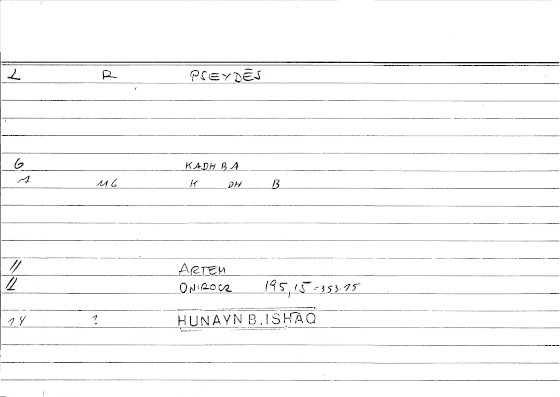 L R PSEYDĒS
6 KADHBA
7 M6 K DH B
11 ARTEM
12 ONIROCR 195,15=353.15
14 ? HUNAYN B.ISHAQ